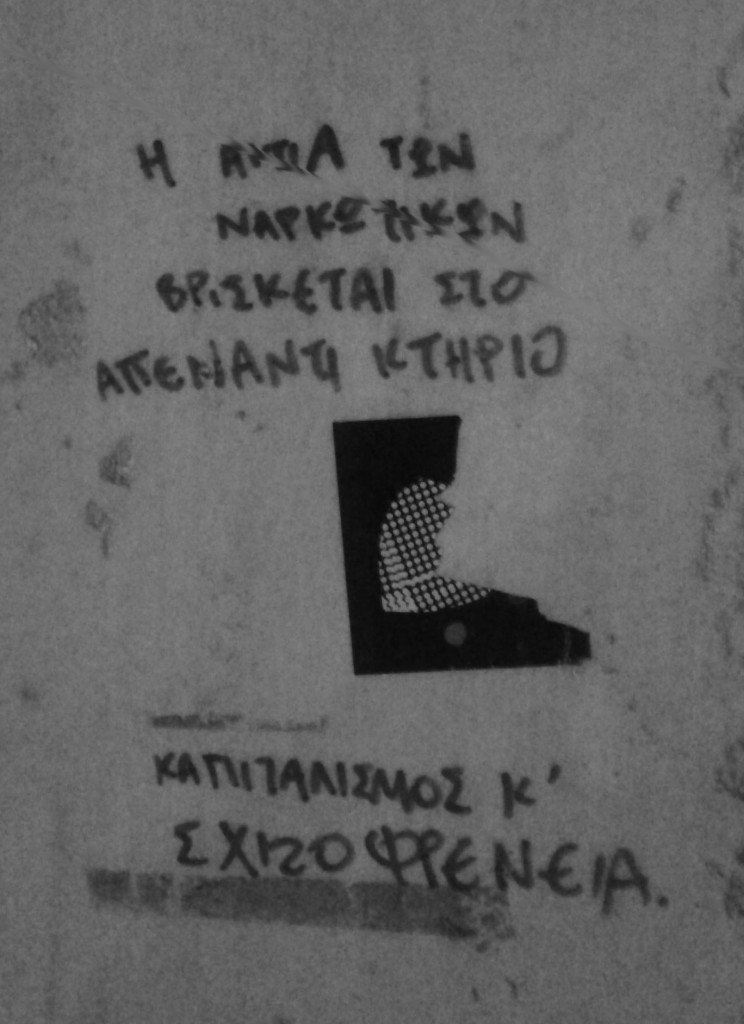 Η ΤΩΝ
ΝΑΡΚΩΤΙΚΩΝ
ΒΡΙΣΚΕΤΑΙ ΣΤΟ
ΑΠΕΝΑΝΤΙ ΚΤΗΡΙΟ
ΚΑΠΙΤΑΛΙΣΜΟΣ Κ'
ΣΧΙΖΟΦΡΕΝΕΙΑ.